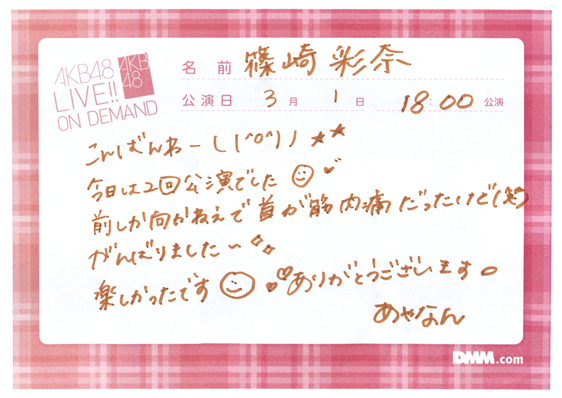 AKB48
LIVE!!
ON DEMAND
AKB
48
名前 篠崎 彩奈
公演日 3月 1日 18:00 公演
こんばんわー(^o^)ノ★★
今日は2回公演でした
前しか向かねえで首が筋肉痛だったけど(笑)
がんばりました〜
楽しかったです ありがとうございます。
あやなん
DMM.com